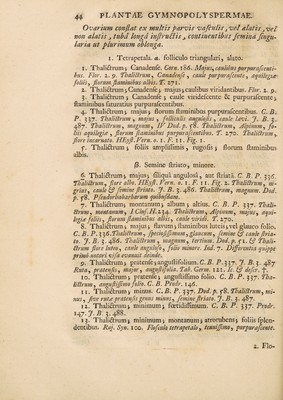 44 PLANTAE GYMNOPOLYSPERMAE.
Ovarium constat ex multis parvis vasculis, vel alatis, vel
non alatis, tubâ longâ instructis, continentibus semina singu-
laria ut plurimum oblonga.
1. Tetrapetala. α. folliculo triangulari, alato.
1. Thalictrum; Canadense. Corn. 186. Majus, caulibus purpurascenti-
bus. Flor. 2. 9. Thalictrum, Canadense, caule purpurascente, aquilegiæ
foliis, florum staminibus albis. T. 271.
2. Thalictrum; Canadense; majus; caulibus viridantibus. Flor. 2. 9.
3. Thalictrum; Canadense; caule viridescente & purpurascente;
staminibus saturatius purpurascentibus.
4. Thalictrum; majus; florum staminibus purpurascentibus. C. B.
P. 337. Thalictrum, majus, folliculis angulosis, caule lævi. J. B. 3.
487. Thalictrum, magnum, Iᵘ. Dod. p. 58. Thalictrum, Alpinum, fo-
liis aquilegiæ, florum staminibus purpurascentibus. T. 270. Thalictrum,
flore incarnato. HEyst. Vern. o. 1. F. 11. Fig. 1.
5. Thalictrum; foliis amplissimis, rugosis; florum staminibus
albis.
β. Semine striato, minore.
6. Thalictrum; majus; siliquâ angulosâ, aut striatâ. C. B. P. 336.
Thalictrum, flore albo. HEyst. Vern. o. 1. F. 11. Fig. 2. Thalictrum, ni-
grius, caule & semine striato. J. B. 3. 486. Thalictrum, magnum. Dod.
p. 58. Pseudorhabarbarum quibusdam.
7. Thalictrum; montanum; album; altius. C. B. P. 337. Thali-
ctrum, montanum, I Clus. H. 234. Thalictrum, Alpinum, majus, aqui-
legiæ foliis, florum staminibus albis, caule viridi. T. 270.
8. Thalictrum; majus; florum staminibus luteis, vel glauco folio.
C. B. P. 336. Thalictrum, speciosissimum, glaucum, semine & caule stria-
to. J. B. 3. 486. Thalictrum, magnum, tertium. Dod. p. 51. Of Thali-
ctrum flore luteo, caule anguloso, folio minore. Ind. 7. Differentia quippe
primò notari visa evanuit deinde.
9. Thalictrum; pratense; angustifolium. C. B. P. 337. J. B. 3. 487
Ruta, pratensis, major, angustifolia. Tab. Germ. 121. Ic. & descr. T.
10. Thalictrum; pratense; angustissimo folio. C. B. P. 337. Tha-
lictrum, angustissimo folio. C. B. Prodr. 146.
11. Thalictrum; minus. C. B. P. 337. Dod. p. 58. Thalictrum, mi-
nus, sive ruta pratensis genus minus, semine striato. J. B. 3. 487.
12. Thalictrum; minimum; fœtidissimum. C. B. P. 337. Prodr.
147. J. B. 3. 488.
13. Thalictrum; minimum; montanum; atrorubens; foliis splen-
dentibus. Raj. Syn. 100. Flosculis tetrapetalis, tenuissimo, purpurascente.
2. Flo-